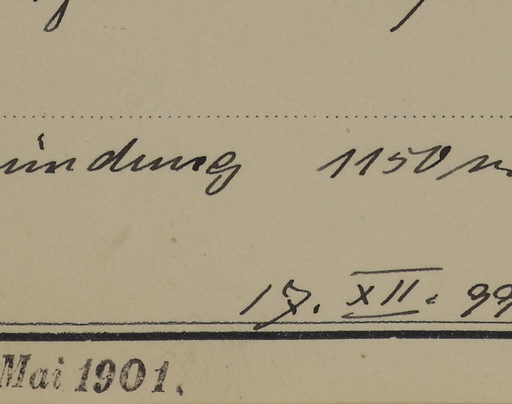 ündung 1150 m
17. XII. 99
Mai 1901.